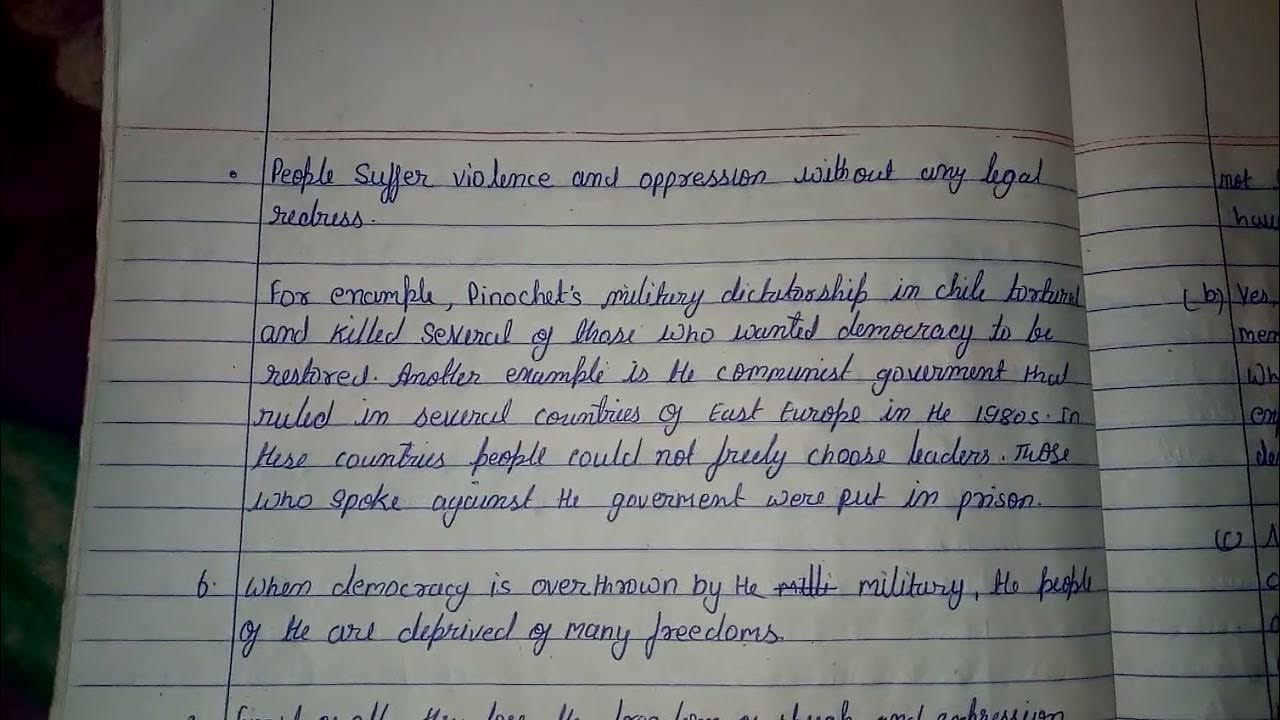 • People suffer violence and oppression without any legal
redress.
For example, Pinochet's military dictatorship in chile tortured
and killed several of those who wanted democracy to be
restored. Another example is the communist goverment that
ruled in several countries of East Europe in the 1980s. In
these countries people could not freely choose leaders. Those
who spoke against the goverment were put in prison.
6. When democracy is overthrown by the milli military, the people
of the are deprived of many freedoms.
and expression
not
(b) Yes,
(c)